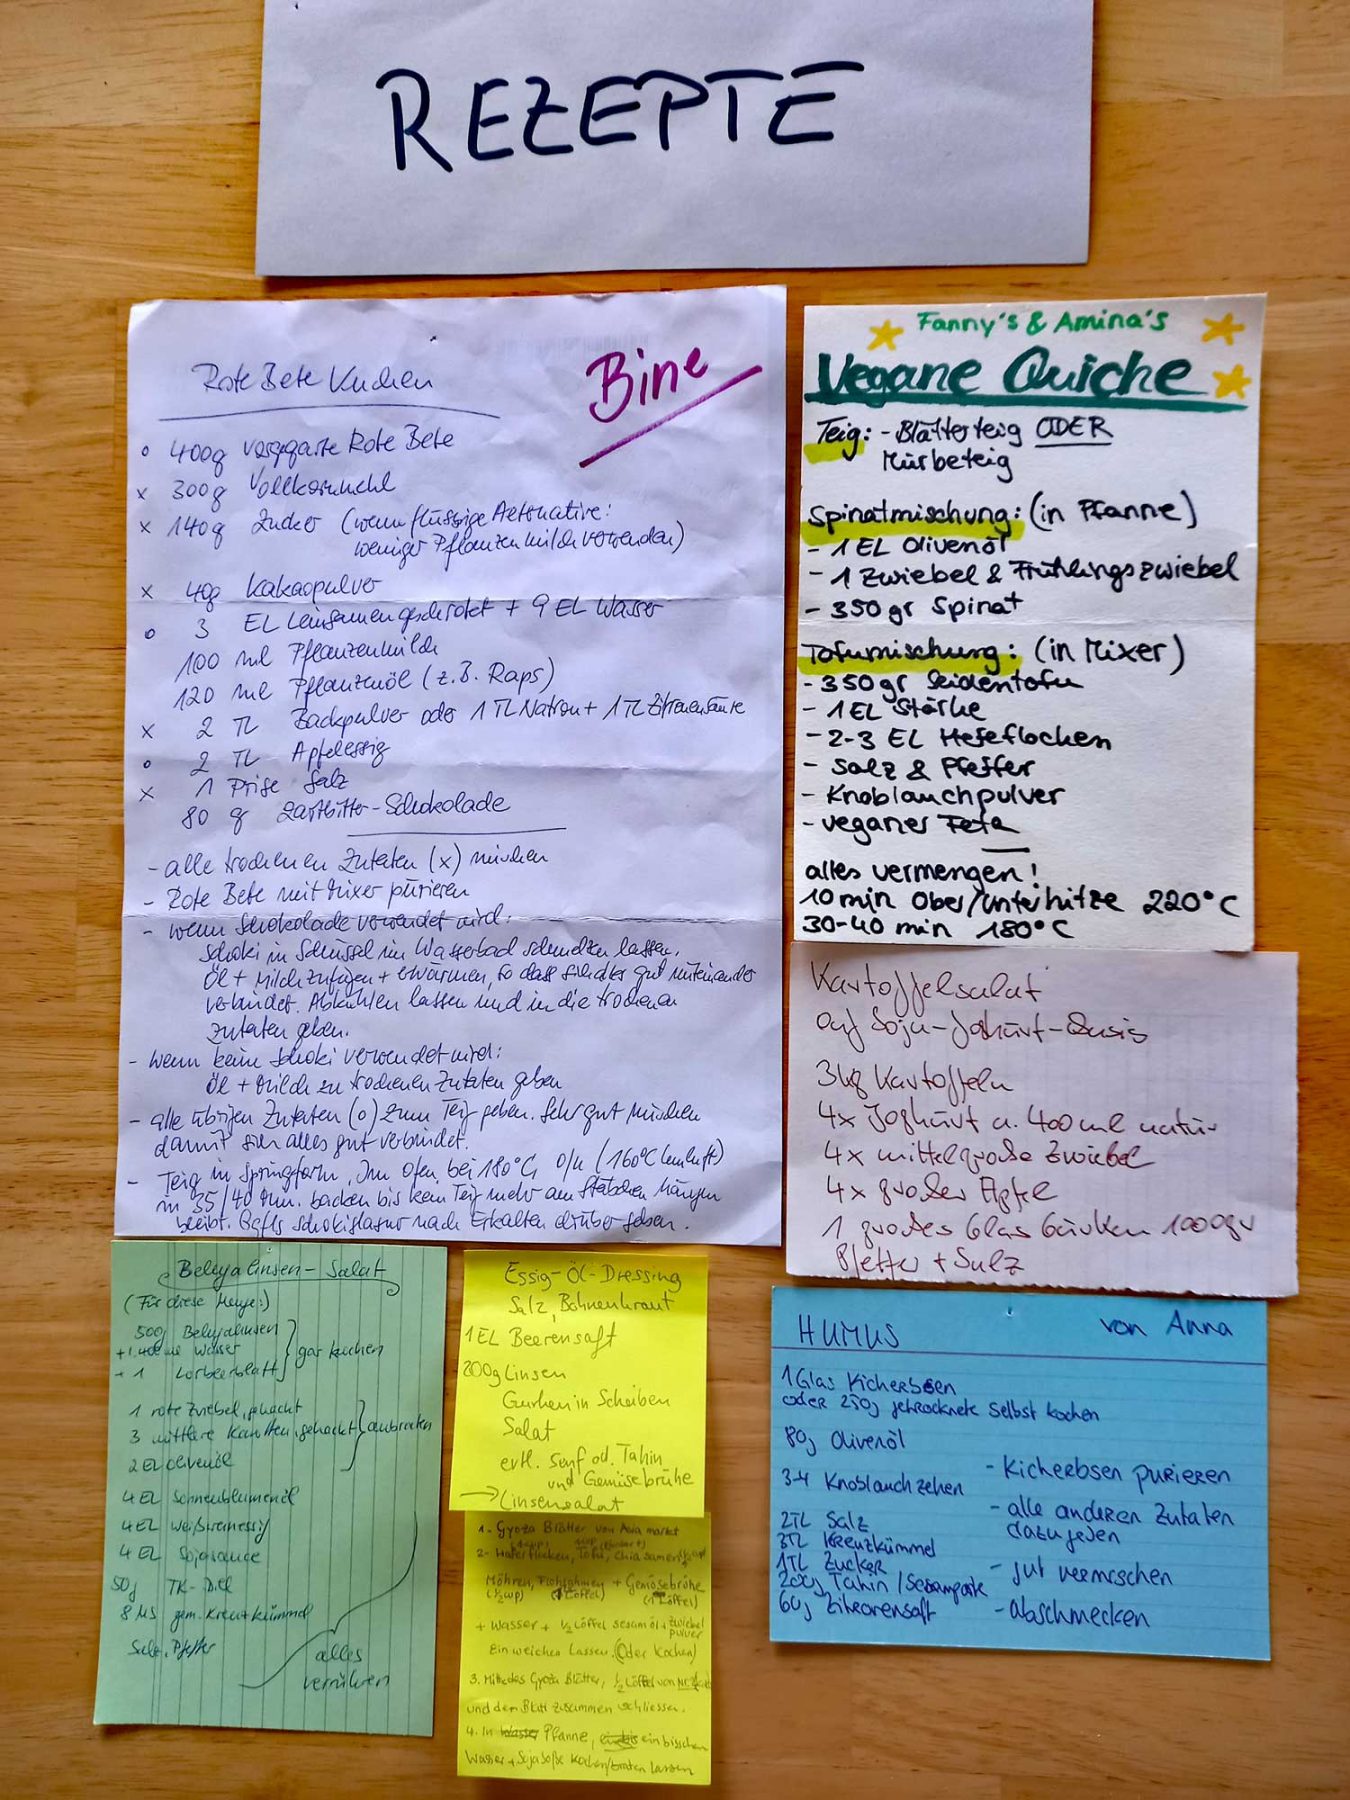 REZEPTE
Rote Bete Kuchen
Bine
o 400g vorgegarte Rote Bete
x 300g Vollkornmehl
x 140g Zucker (wenn flüssige Alternative:
weniger Pflanzenmilch verwenden)
x 40g Kakaopulver
o 3 EL Leinsamen geschrotet + 9 EL Wasser
100 ml Pflanzenmilch
120 ml Pflanzenöl (z.B. Raps)
x 2 TL Backpulver oder 1 TL Natron + 1 TL Zitronensäure
o 2 TL Apfelessig
x 1 Prise Salz
80 g Zartbitter-Schokolade
- alle trockenen Zutaten (x) mischen
- Rote Bete mit Mixer pürieren
- wenn Schokolade verwendet wird:
Schoki in Schüssel im Wasserbad schmelzen lassen.
Öl + Milch zufügen + erwärmen, so dass sich alles gut miteinander
verbindet. Abkühlen lassen und in die trockenen
Zutaten geben.
- wenn keine Schoki verwendet wird:
Öl + Milch zu trockenen Zutaten geben
- alle übrigen Zutaten (o) zum Teig geben. Sehr gut mischen
damit sich alles gut verbindet.
- Teig in Springform. Im Ofen bei 180°C O/U (160°C Umluft)
in 35/40 Min. backen bis kein Teig mehr am Stäbchen hängen
bleibt. Ggfls Schokiglasur nach Erkalten drüber geben.
Fanny's & Amina's
Vegane Quiche
Teig: - Blätterteig ODER
Mürbeteig
Spinatmischung: (in Pfanne)
- 1 EL Olivenöl
- 1 Zwiebel & Frühlingszwiebel
- 350 gr Spinat
Tofumischung: (in Mixer)
- 350 gr Seidentofu
- 1 EL Stärke
- 2-3 EL Hefeflocken
- Salz & Pfeffer
- Knoblauchpulver
- veganer Feta
alles vermengen!
10 min Ober/Unterhitze 220°C
30-40 min 180°C
Kartoffelsalat
auf Soja-Joghurt-Basis
3kg Kartoffeln
4x Joghurt a. 400ml natur
4x mittelgroße Zwiebel
4x großer Apfel
1 großes Glas Gurken 1000gr
Pfeffer + Salz
Belugalinsen-Salat
(Für diese Menge:)
500g Belugalinsen
+ 1.400 ml Wasser
+ 1 Lorbeerblatt } gar kochen
1 rote Zwiebel, gehackt
3 mittlere Karotten, gehackt } anbraten
2 EL Olivenöl
4 EL Sonnenblumenöl
4 EL Weißweinessig
4 EL Sojasauce
50g TK-Dill
8 MS gem. Kreuzkümmel
Salz, Pfeffer
alles
verrühren
Essig-Öl-Dressing
Salz, Bohnenkraut
1EL Beerensaft
200g Linsen
Gurken in Scheiben
Salat
evtl. Senf od. Tahin
und Gemüsebrühe
→ Linsensalat
1. Gyoza Blätter von Asia markt
2- Haferflocken, Tofu, Chia samen
Möhren, Flohsamen + Gemüsebrühe
(½ cup) (1 Löffel) (1 Löffel)
+ Wasser + ½ Löffel Sesamöl + Zwiebel
pulver
Einweichen Lassen. (Oder Kochen)
3. Mitte des Gyoza Blätter, ½ Löffel von Nr. 2
und den Blatt zusammen schliessen.
4. In Wasser Pfanne, ein bisschen
Wasser + Soja Soße Kochen/braten lassen
HUMUS von Anna
1 Glas Kichererbsen
oder 250g getrocknete selbst kochen
80g Olivenöl
3-4 Knoblauchzehen
2TL Salz
3TL Kreuzkümmel
1TL Zucker
200g Tahin / Sesampaste
60g Zitronensaft
- Kicherbsen pürieren
- alle anderen Zutaten
dazugeben
- gut vermischen
- abschmecken